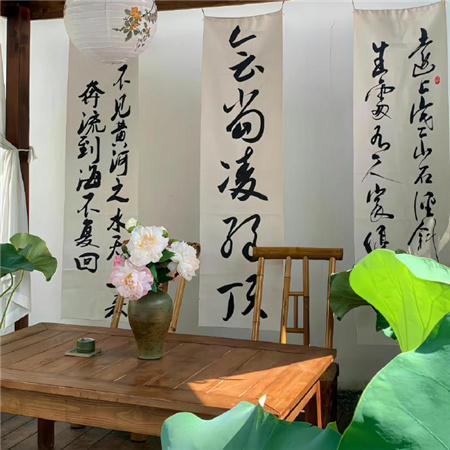 不见黄河之水天
奔流到海不复回
会当凌绝顶
远上寒山石径斜
生处有人家停